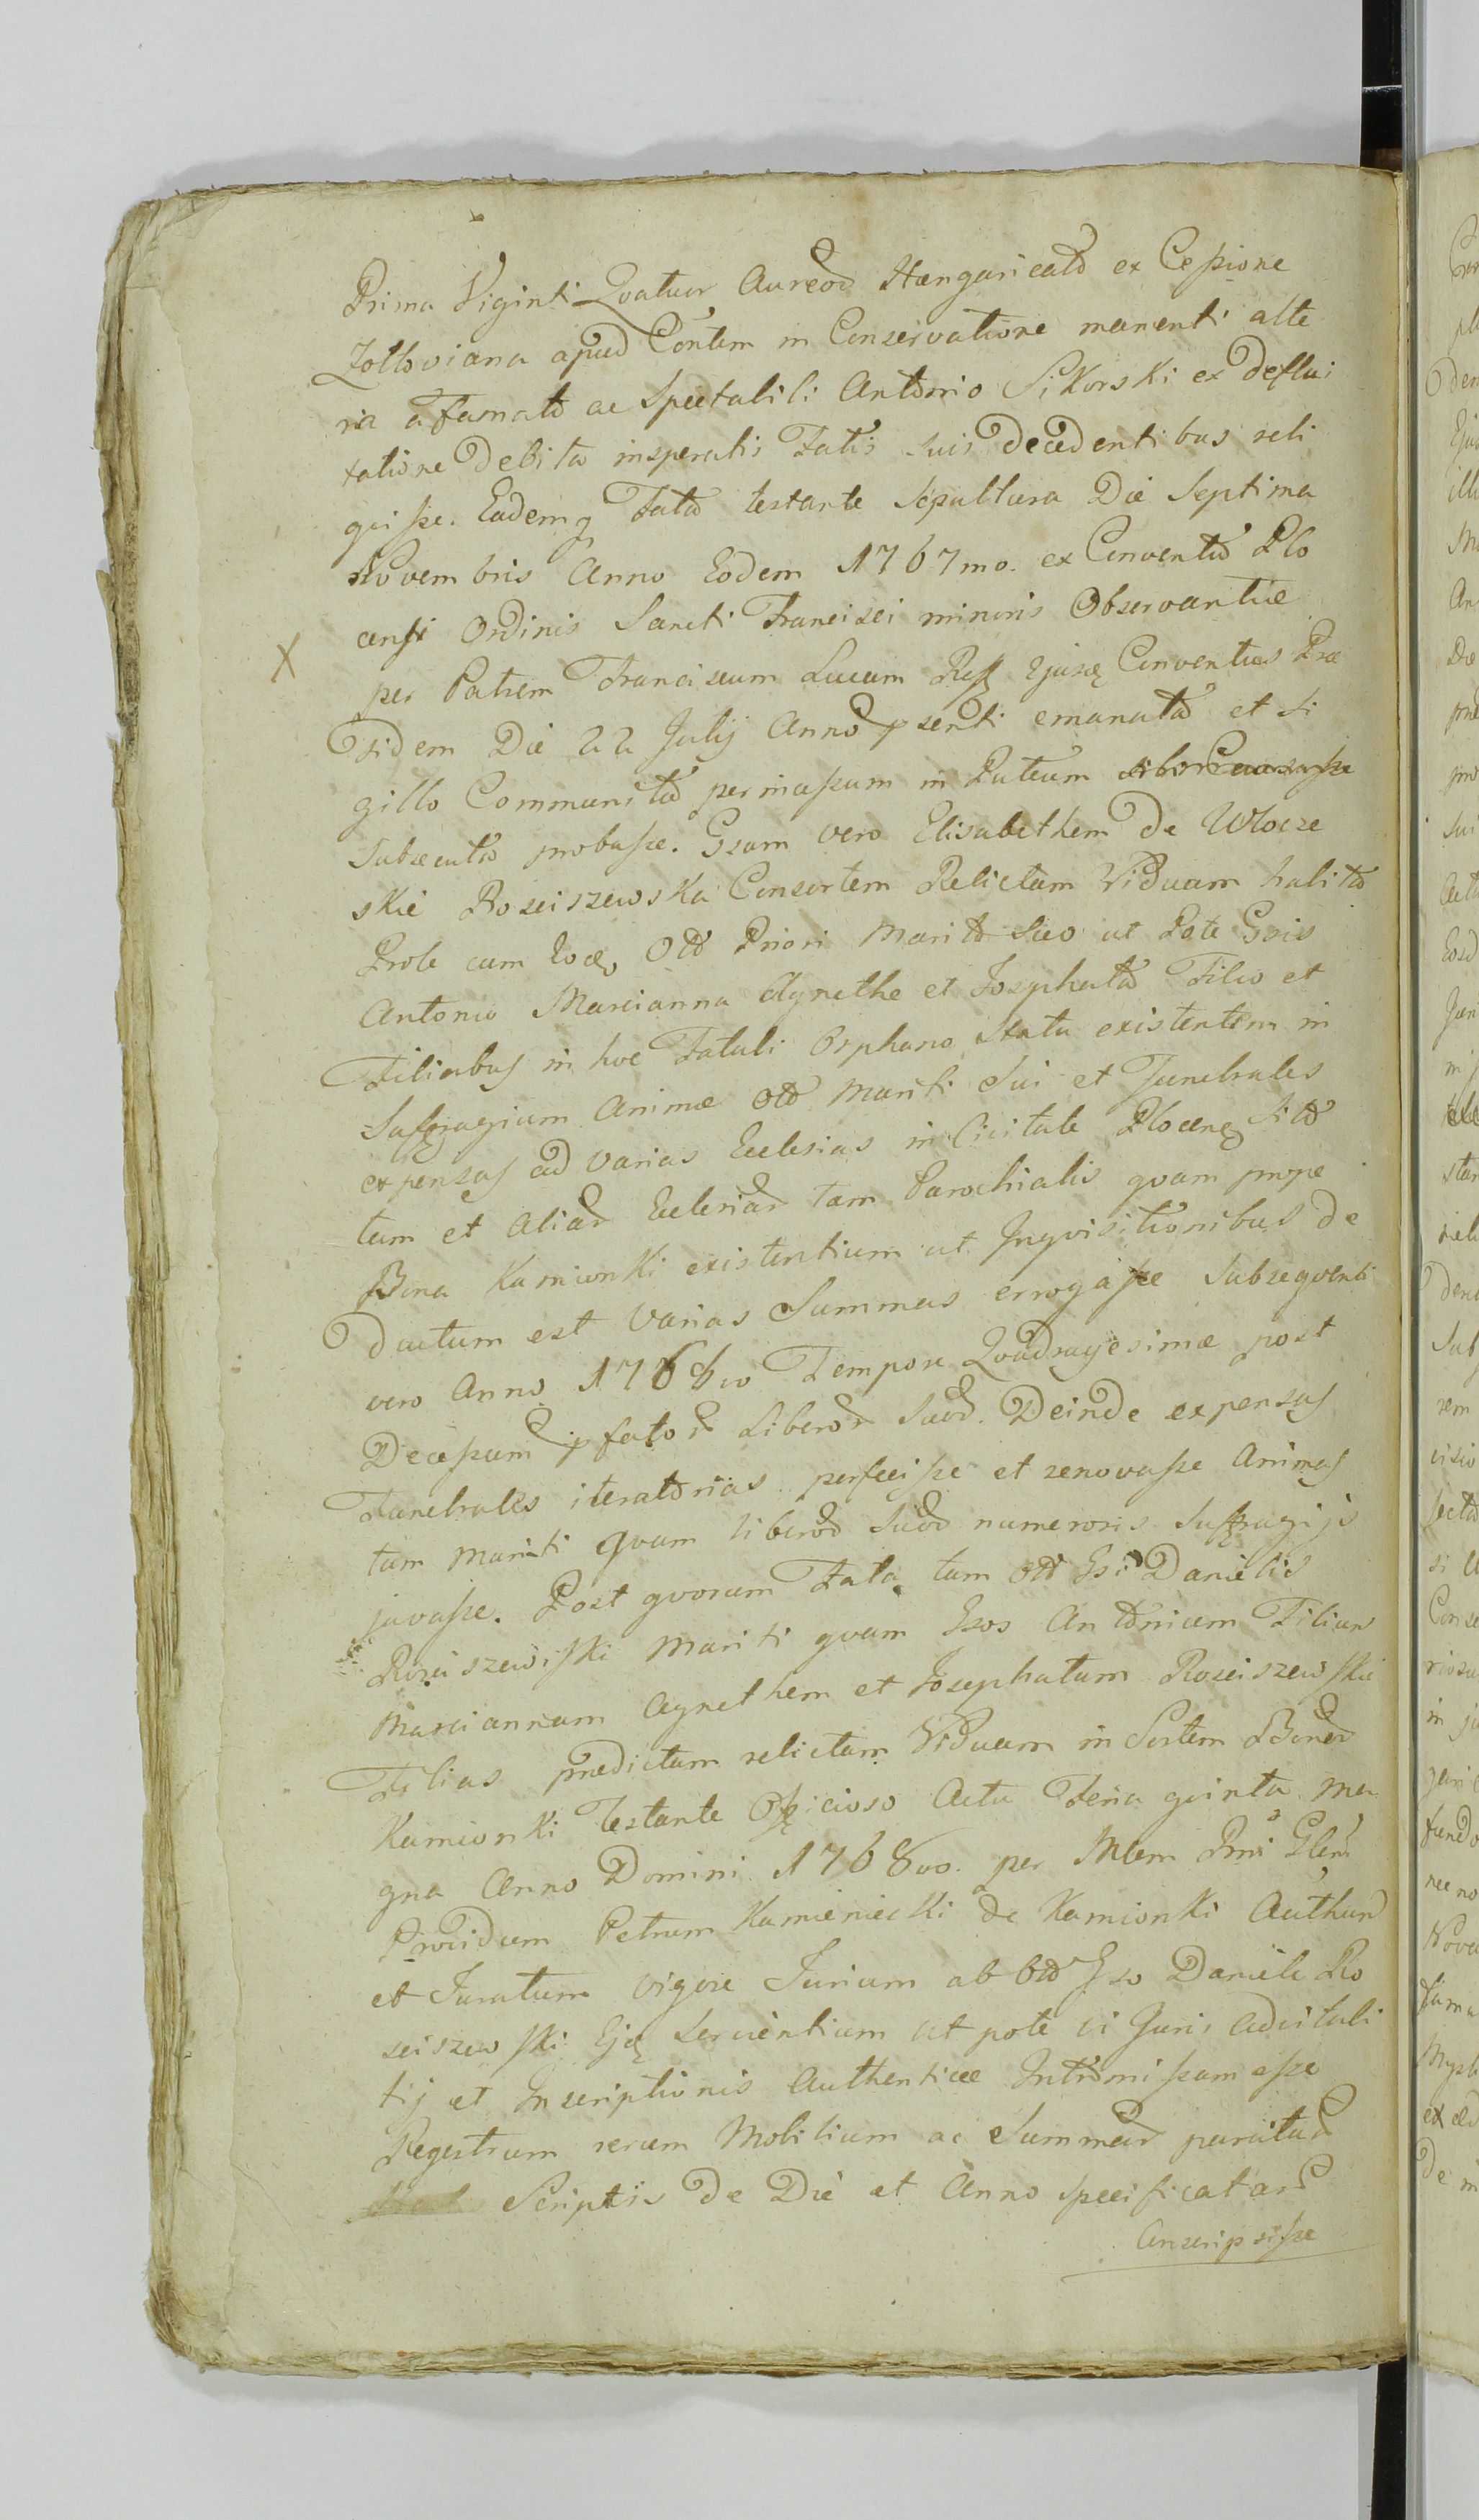 Prima Viginti Qvatuor Aureor Hungaricalr ex Cessione
Zotloviana apud Contem in Conservatione manenti alte
ria a Famato ac Spectabili Antonio Sikorski ex Deflui
tatione Debita insperatis Fatis suis decedentibus reli
qvisse. Eademq Fata testante Sepultura Die Septima
Novembris Anno Eodem 1767mo. ex Conventu Plo
censi Ordinis Sancti Francisci minoris Observantiæ
X
per Patrem Franciscum Lucam Ejusq Conventus Præ
sidem Die 22 Julij Anno psenti emanata et Si
gillo Communita permassum in Puteum
Subsecuta probasse. Gsam vero Elisabethem de Wlocze
skie Rosciszewska Consortem Relictam Viduam habita
Prole cum Eoq Priori Marito Suo ut Pote Gsis
Antonio Marcianna Agnethe et Josephata Filio et
Filiabus in hoc Fatali Orphano Statu existentem in
Suffragium Animæ Mariti Sui et Funebrales
expensas ad varias Ecclesias in Civitate Plocen Sita
tum et aliar Ecclesiar tam Parochialis qvam prope
Bona Kamionki existentium ut Inqvisitionibus de
ductum est varias Summas errogasse Subseqventi
vero Anno 1768vo Tempore Qvadragesimæ post
Decessum pfator Liberor Suor. Deinde expensas
Funebrales iteratorias perfecisse et renovasse Animas
tam Mariti qvam liberor Suor numerosis Suffragijs
juvasse. Post qvorum Fata tam Gsi Danielis
Rosciszewski Mariti qvam Gsos Antonium Filium
Marciannam Agnethem et Josephatam Rosciszewskie
Filias prædictam relictam Viduam in Sortem Bonor
Kamionki Testante Officioso Actu Feria qvinta Ma
gna Anno Domini 1768vo. per Mlem Glem
Providum Petrum Kamieniecki de Kamionki Authum
et Juratum vigore Jurium ab Gso Daniele Ro
sciszewski Ejq Servientium ut pote vi Juris advitali
tij et Inscriptionis Authenticæ Intromissam esse
Regestrum rerum Mobilium ac Summar paratar
Scriptis de Die et Anno Specificatar
Conscripsisse